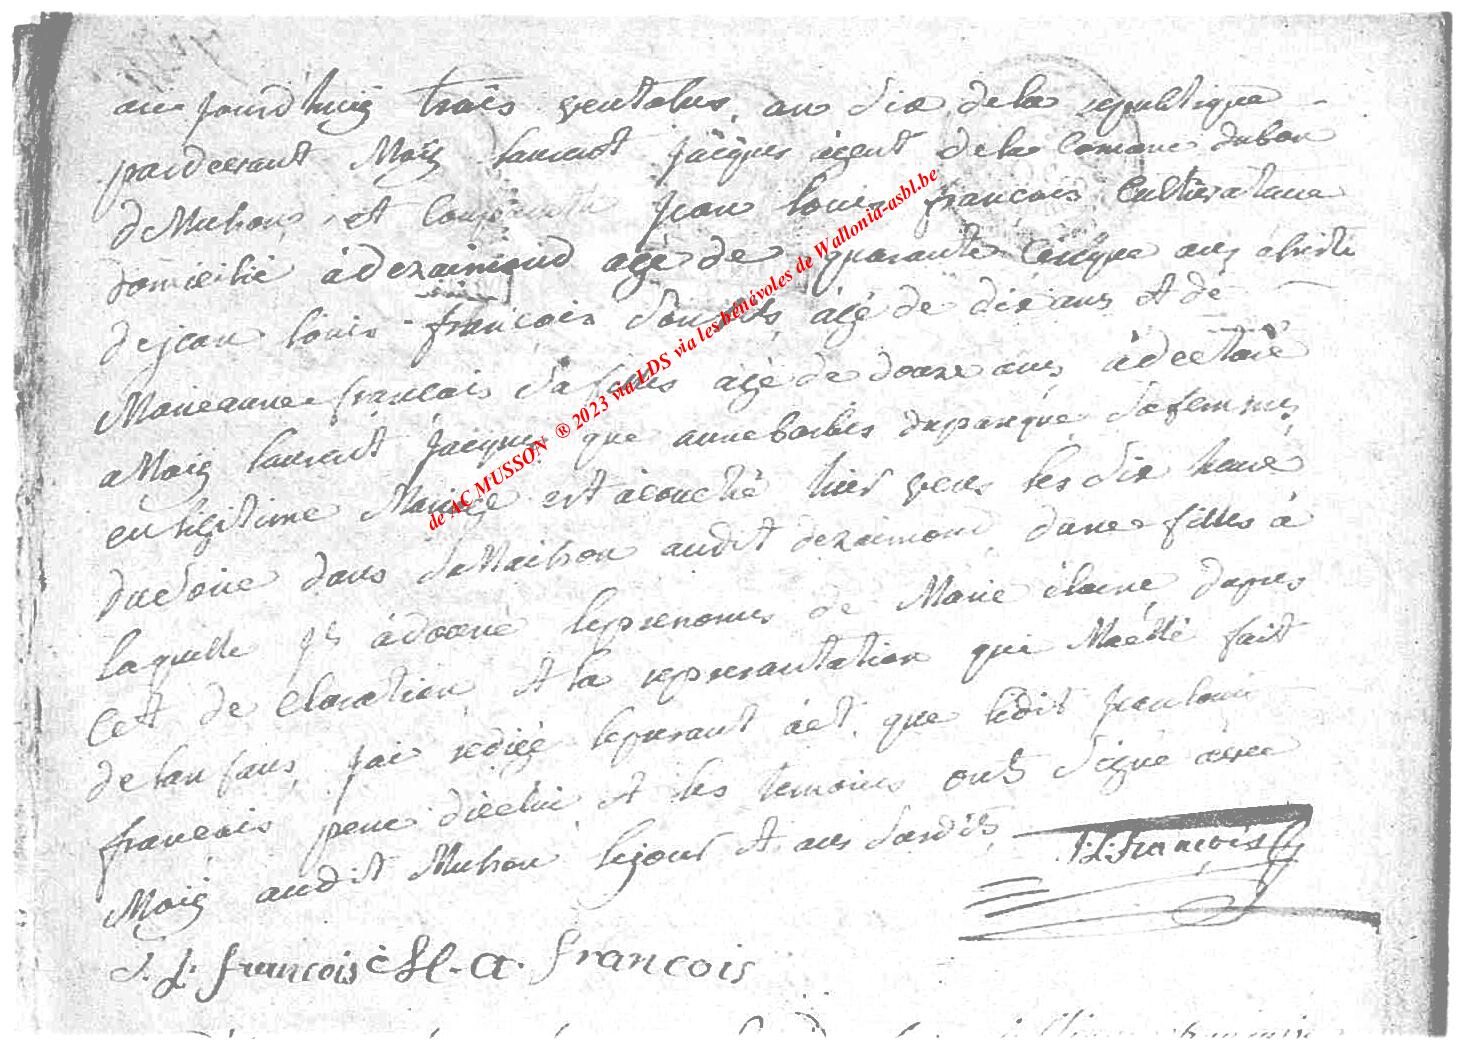 aue jourd'huiÿ trois ventalus, an dix de la republique
pardeevant Moiÿ laurent jacques agent dela Comune duban
d Muhons et Comparut jean louis francois Cultivateure
domicilié à deraimond agé de quarante Cinque ans assisté
dejean louis francois son fils âgé de dix ans et de
Marieanne francois sa filles âgé de douze ans à declaré
a Moiÿ laurent jacques que annebarbes duparque safemmes
en legitime Mariage est acouché hier vers les dix heure
dusoire dans sa Maison audit deraimond dune filles à
laquelle jl à donné leprenoms de Marie elaine dapres
Cet de Claration et la representation qui Maétté fait
delanfans, jai redigé lepresant act. que ledit jeanlouis
francois pere dicelui et les temoins onts signé avec
Moiÿ audit Muhon lejour et ans susdits J: L: francois
J. L. francois M. a. francois
de AC MUSSON ® 2023 via LDS via les bénévoles de Wallonia-asbl.be